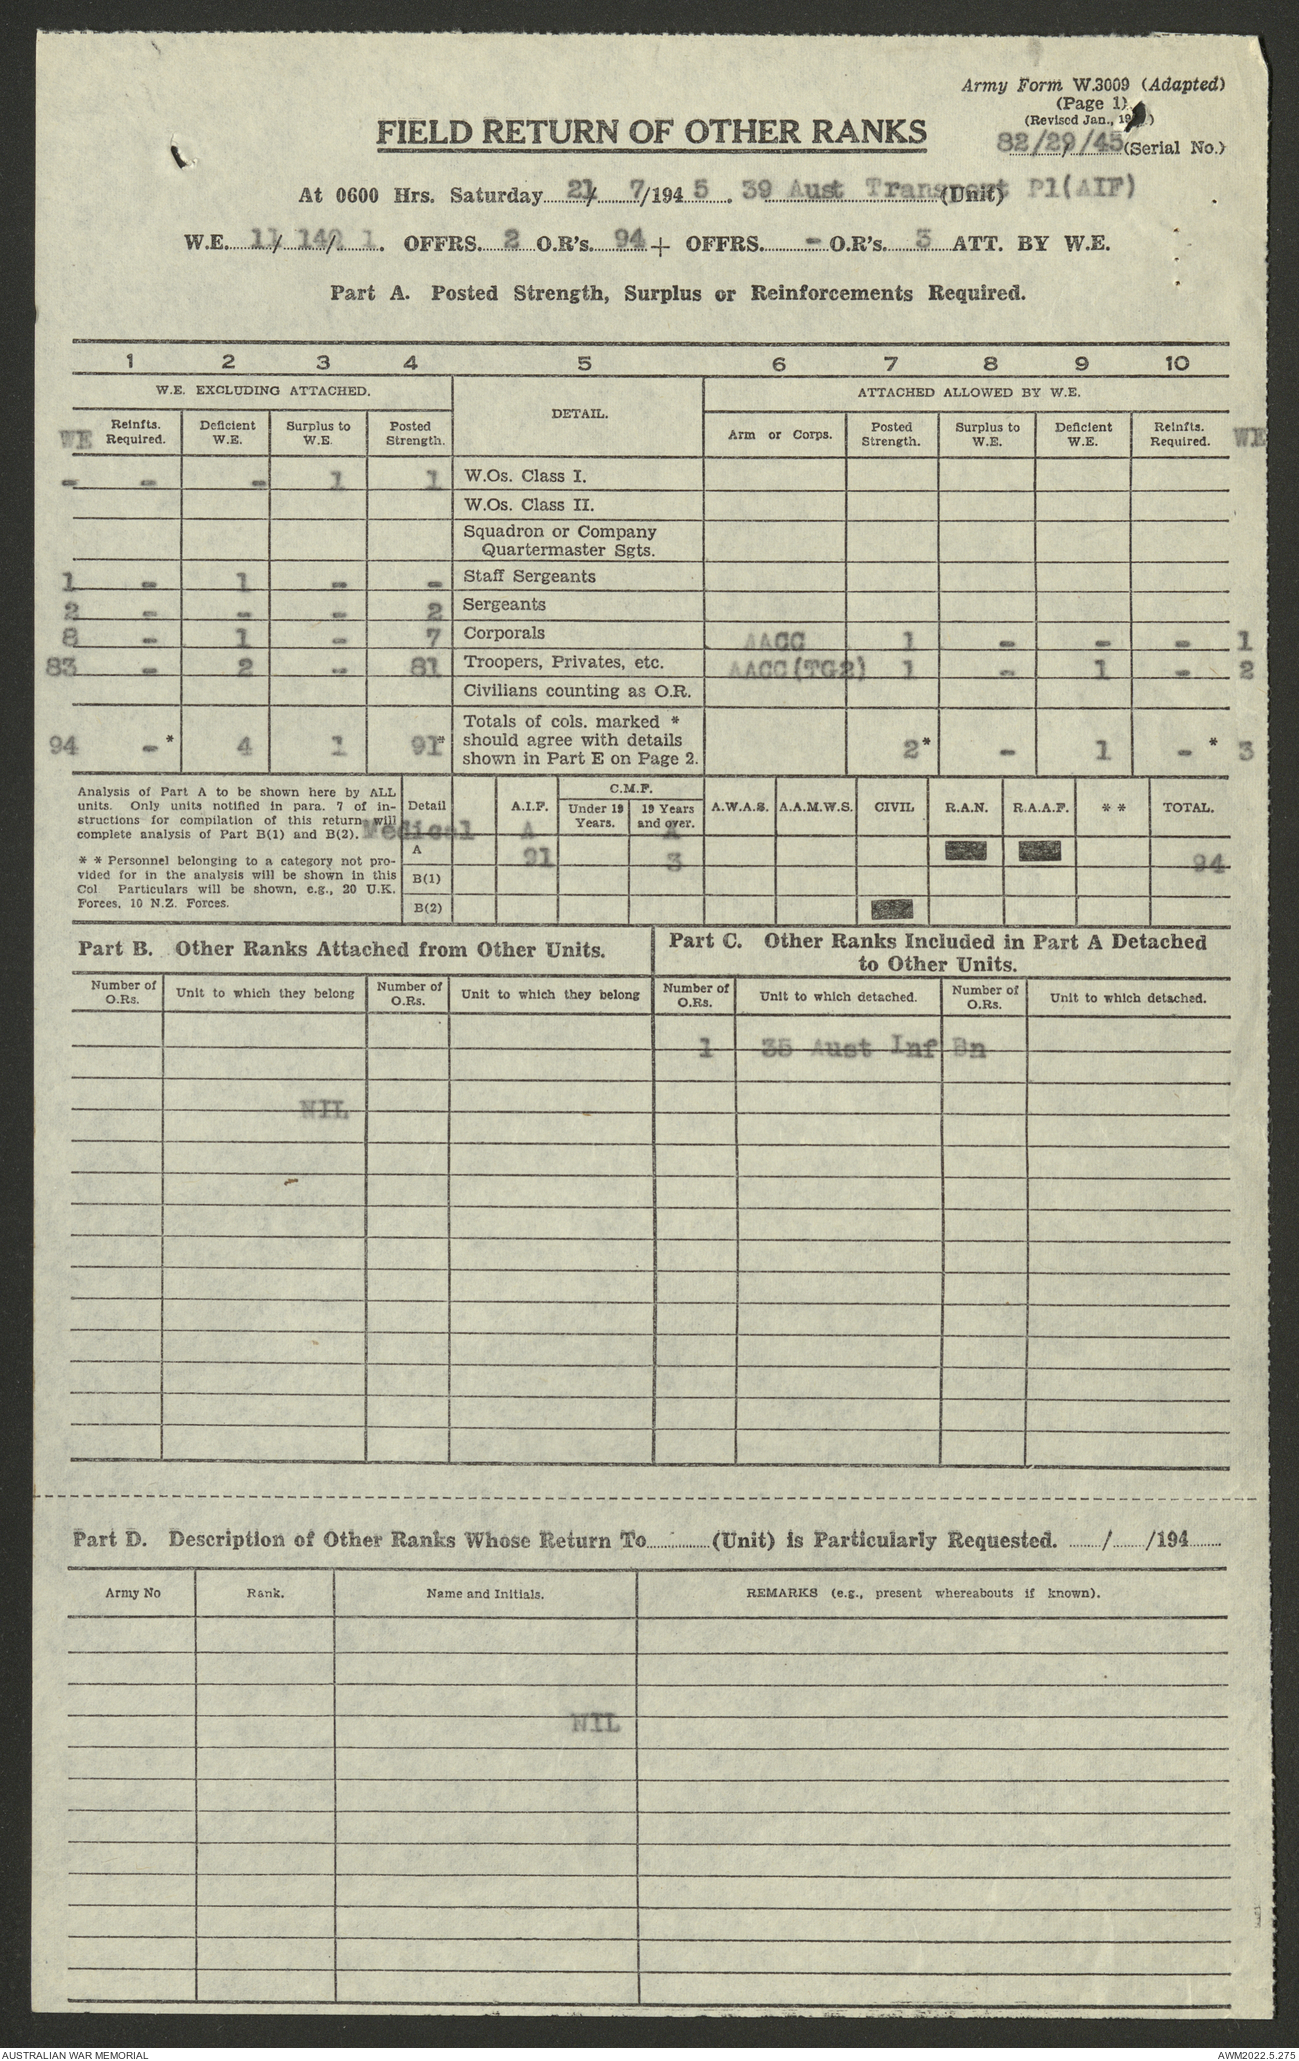 Army Form W.3009 (Adapted)
(Page 1)
(Revised Jan., 19 )
FIELD RETURN OF OTHER RANKS
82/29/45 (Serial No.)
At 0600 Hrs. Saturday 21/ 7/194 5. 39 Aust Transport Pl(AIF) (Unit)
W.E. 11/ 140/ 1. OFFRS. 2 O.R's. 94 + OFFRS. - O.R's. 3 ATT. BY W.E.
Part A. Posted Strength, Surplus or Reinforcements Required.
1 2 3 4 5 6 7 8 9 10
W.E. EXCLUDING ATTACHED. DETAIL. ATTACHED ALLOWED BY W.E.
WE Reinfts. Required. Deficient W.E. Surplus to W.E. Posted Strength. Arm or Corps. Posted Strength. Surplus to W.E. Deficient W.E. Reinfts. Required. WE
- - - 1 1 W.Os. Class I.
W.Os. Class II.
Squadron or Company
Quartermaster Sgts.
1 - 1 - - Staff Sergeants
2 - - - 2 Sergeants
8 - 1 - 7 Corporals AACC 1 - - - 1
83 - 2 - 81 Troopers, Privates, etc. AACC(TG2) 1 - 1 - 2
Civilians counting as O.R.
Totals of cols. marked *
should agree with details
shown in Part E on Page 2.
94 -* 4 1 91* 2* - 1 - * 3
Analysis of Part A to be shown here by ALL
units. Only units notified in para. 7 of in-
structions for compilation of this return will
complete analysis of Part B(1) and B(2).
* * Personnel belonging to a category not pro-
vided for in the analysis will be shown in this
Col Particulars will be shown, e.g., 20 U.K.
Forces, 10 N.Z. Forces.
Detail A.I.F. C.M.F. Under 19 Years. 19 Years and over. A.W.A.S. A.A.M.W.S. CIVIL R.A.N. R.A.A.F. * * TOTAL.
Medical A A
A 91 3 94
B(1)
B(2)
Part B. Other Ranks Attached from Other Units.
Part C. Other Ranks Included in Part A Detached
to Other Units.
Number of O.Rs. Unit to which they belong Number of O.Rs. Unit to which they belong Number of O.Rs. Unit to which detached. Number of O.Rs. Unit to which detached.
1 35 Aust Inf Bn
NIL
Part D. Description of Other Ranks Whose Return To (Unit) is Particularly Requested. / /194
Army No Rank. Name and Initials. REMARKS (e.g., present whereabouts if known).
NIL
AUSTRALIAN WAR MEMORIAL
AWM2022.5.275